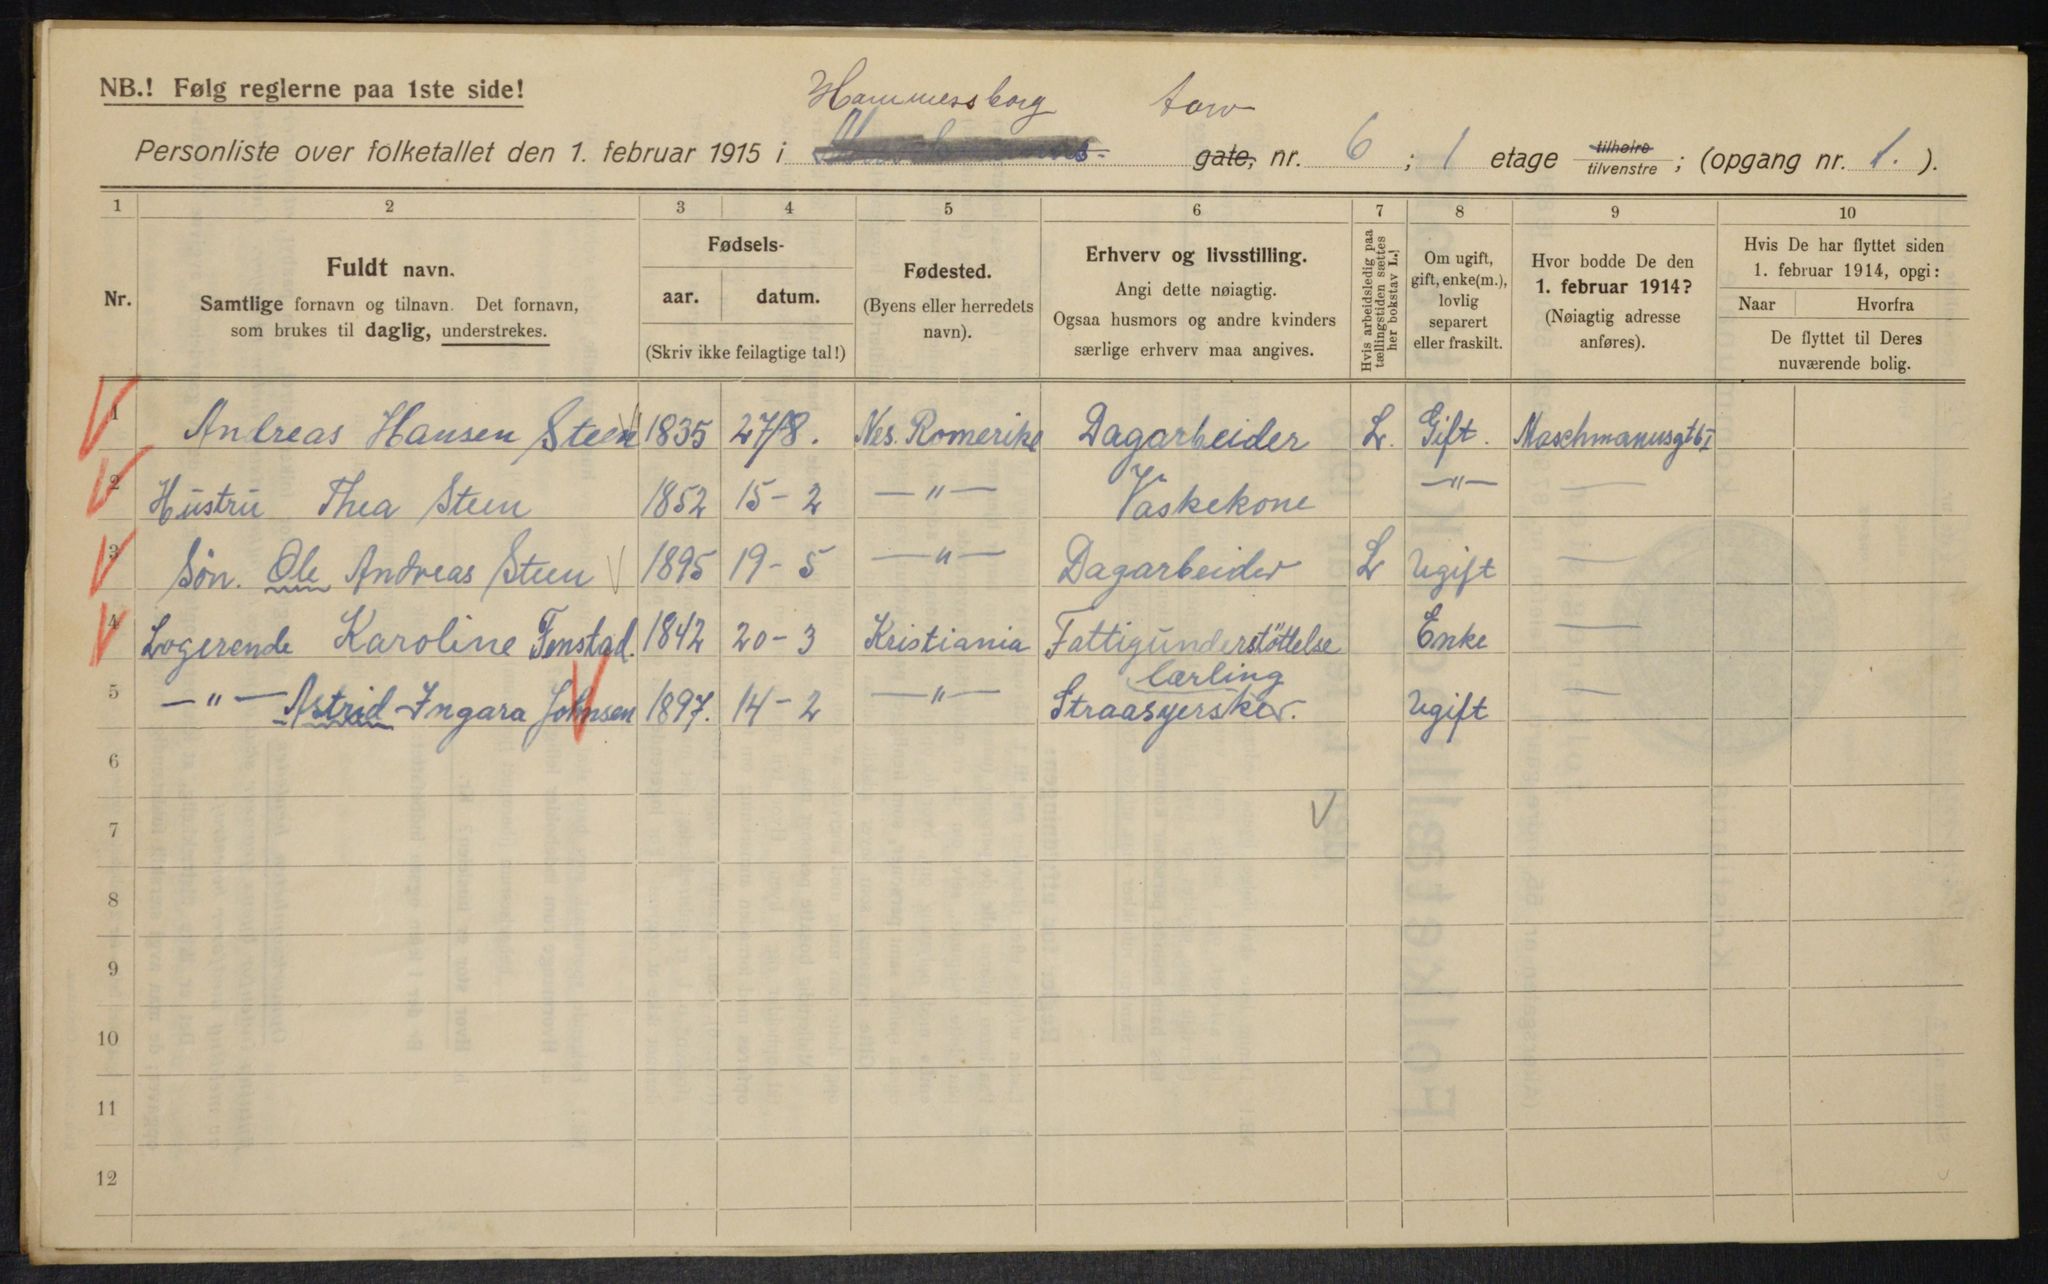 NB.! Følg reglerne paa 1ste side!
Hammersborg torv
Personliste over folketallet den 1. februar 1915 i gate, nr. 6 ; 1 etage tilhøire tilvenstre ; (opgang nr. 1. ).
1 2 3 4 5 6 7 8 9 10
Nr.
Fuldt navn.
Samtlige fornavn og tilnavn. Det fornavn,
som brukes til daglig, understrekes.
Fødsels-
aar. datum.
(Skriv ikke feilagtige tal!)
Fødested.
(Byens eller herredets
navn).
Erhverv og livsstilling.
Angi dette nøiagtig.
Ogsaa husmors og andre kvinders
særlige erhverv maa angives.
Hvis arbeidsledig paa
tællingstiden sættes
her bokstav L.!
Om ugift,
gift, enke(m.),
lovlig
separert
eller fraskilt.
Hvor bodde De den
1. februar 1914?
(Nøiagtig adresse
anføres).
Hvis De har flyttet siden
1. februar 1914, opgi:
Naar Hvorfra
De flyttet til Deres
nuværende bolig.
1 Andreas Hansen Steen 1835 27/8. Nes. Romerike Dagarbeider L. Gift. Maschmanusgt 6 I
2 Hustru Thea Steen 1852 15-2 —"— Vaskekone —"— —
3 Søn. Ole Andreas Steen 1895 19-5 —"— Dagarbeider L Ugift —
4 Logerende Karoline Fenstad. 1842 20-3 Kristiania Fattigunderstöttelse Enke —
lærling
5 —"— Astrid Ingara Johnsen 1897. 14-2 —"— Straasyersker. Ugift —
6
7
8
9
10
11
12